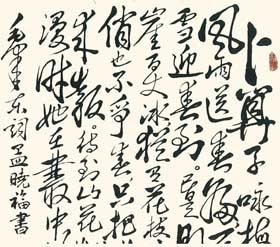 卜算子 咏梅
风雨送春归
雪迎春到已是
崖百丈冰犹有花枝
俏也不争春只把
来报待到山花
漫时她在叢中
毛泽东词孟晓福書